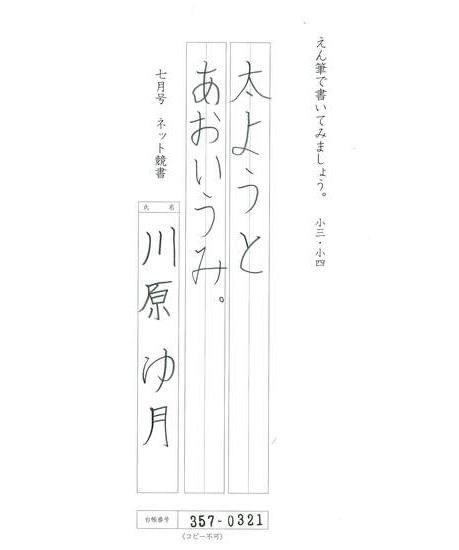 えん筆で書いてみましょう。 小三・小四
太ようと
あおいうみ。
七月号 ネット競書
氏 名
川原 ゆ月
台帳番号 357-0321
(コピー不可)